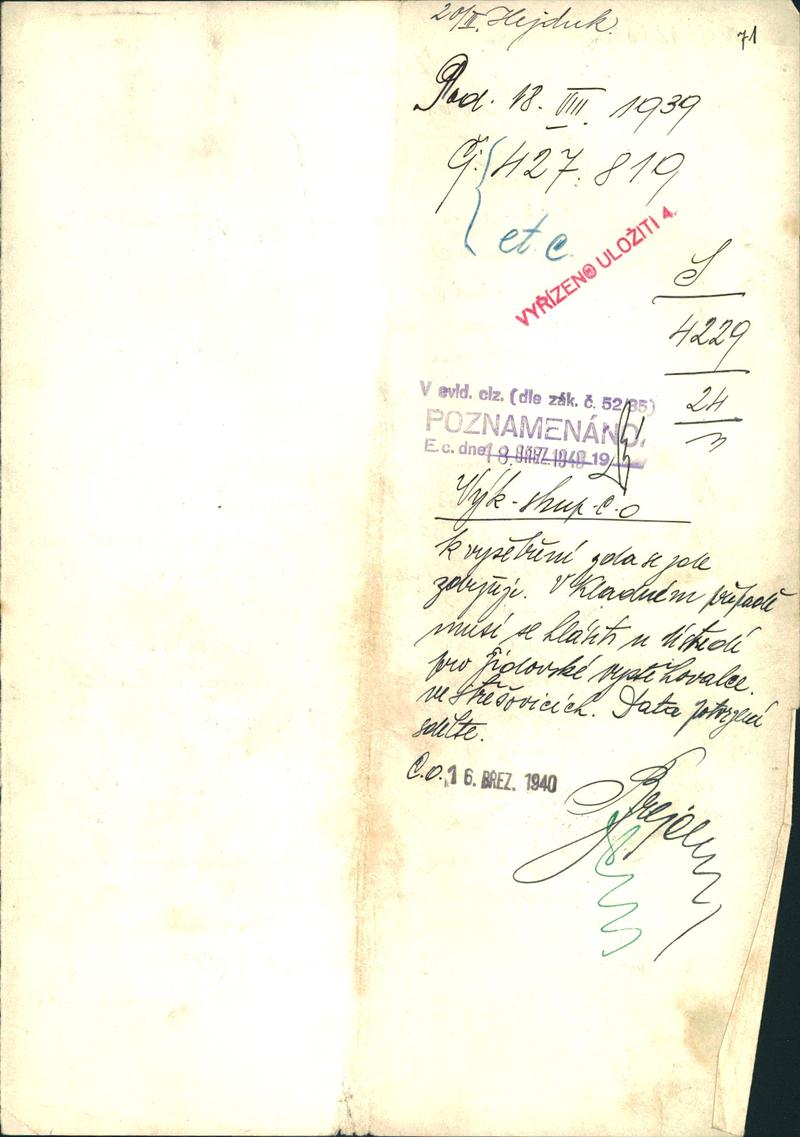 20/III. Hejduk.
71
Pod. 18. VIII. 1939
Čj: 427.819
etc.
VYŘÍZENO ULOŽITI 4.
S
4229
24
V evid. ciz. (dle zák. č. 52/35)
POZNAMENÁNO.
E. c. dne 18. BŘEZ. 1940 19
Výk. skup. č. o
k vyšetření zda se zde
zdržuje. V kladném případě
musí se hlásiti u ústředí
pro židovské vystěhovalce
ve Střešovicích. Data potvrzení
sdělte.
C.O. 16. BŘEZ. 1940